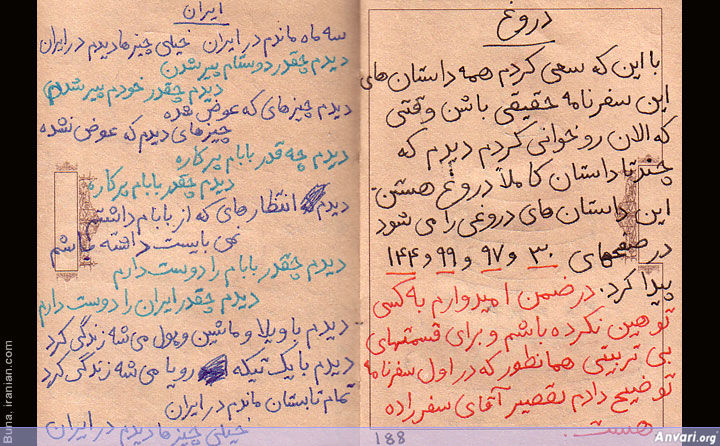 دروغ
با این که سعی کردم همه داستان های
این سفرنامه حقیقی باشن وقتی
که الان روخوانی کردم دیدم که
چند تا داستان کاملاً دروغ هستن
این داستان های دروغی را می شود
در صفحه های ۳۰ و ۹۷ و ۹۹ و ۱۴۴
پیدا کرد. در ضمن امیدوارم به کسی
توهین نکرده باشم و برای قسمتهای
بی تربیتی همانطور که در اول سفرنامه
توضیح دادم تقصیر آقای سفرزاده
هست.
188
ایران
سه ماه ماندم در ایران خیلی چیزها دیدم در ایران
دیدم چقدر دوستام پیر شدن
دیدم چقدر خودم پیر شدم
دیدم چیزهای که عوض شده
چیزهای دیدم که عوض نشده
دیدم چه قدر بابام پر کاره
دیدم چقدر بابام پر کاره
دیدم انتظارهای که از بابام داشتم
نمی بایست داشته باشم
دیدم چقدر بابام را دوست دارم
دیدم چقدر ایران را دوست دارم
دیدم با ویلا و ماشین و پول می شه زندگی کرد
دیدم با یک تیکه رویا می شه زندگی کرد
تمام تابستان ماندم در ایران
خیلی چیزها دیدم در ایران
Buna. iranian.com
Anvari.org